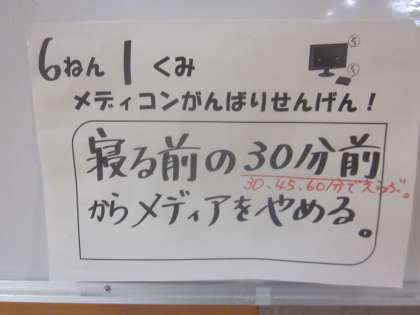 6ねん1くみ
メディコンがんばりせんげん！
寝る前の30分前
30、45、60分でえらぶ。
からメディアをやめる。